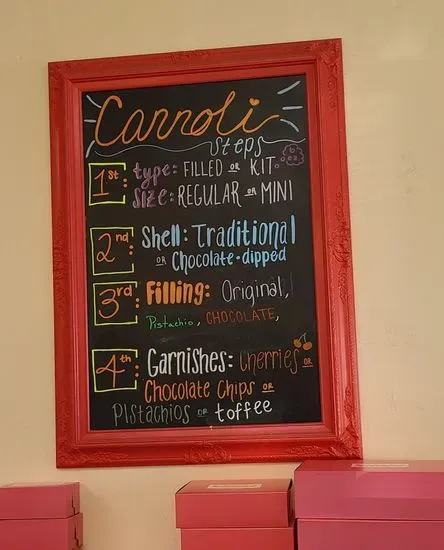 Cannoli
Steps
1st: type: FILLED OR KIT
6 ea.
SIZE: REGULAR OR MINI
2nd: Shell: Traditional
OR Chocolate-dipped
3rd: Filling: Original,
Pistachio, CHOCOLATE,
4th: Garnishes: Cherries OR
Chocolate Chips OR
PISTACHIOS OR toffee